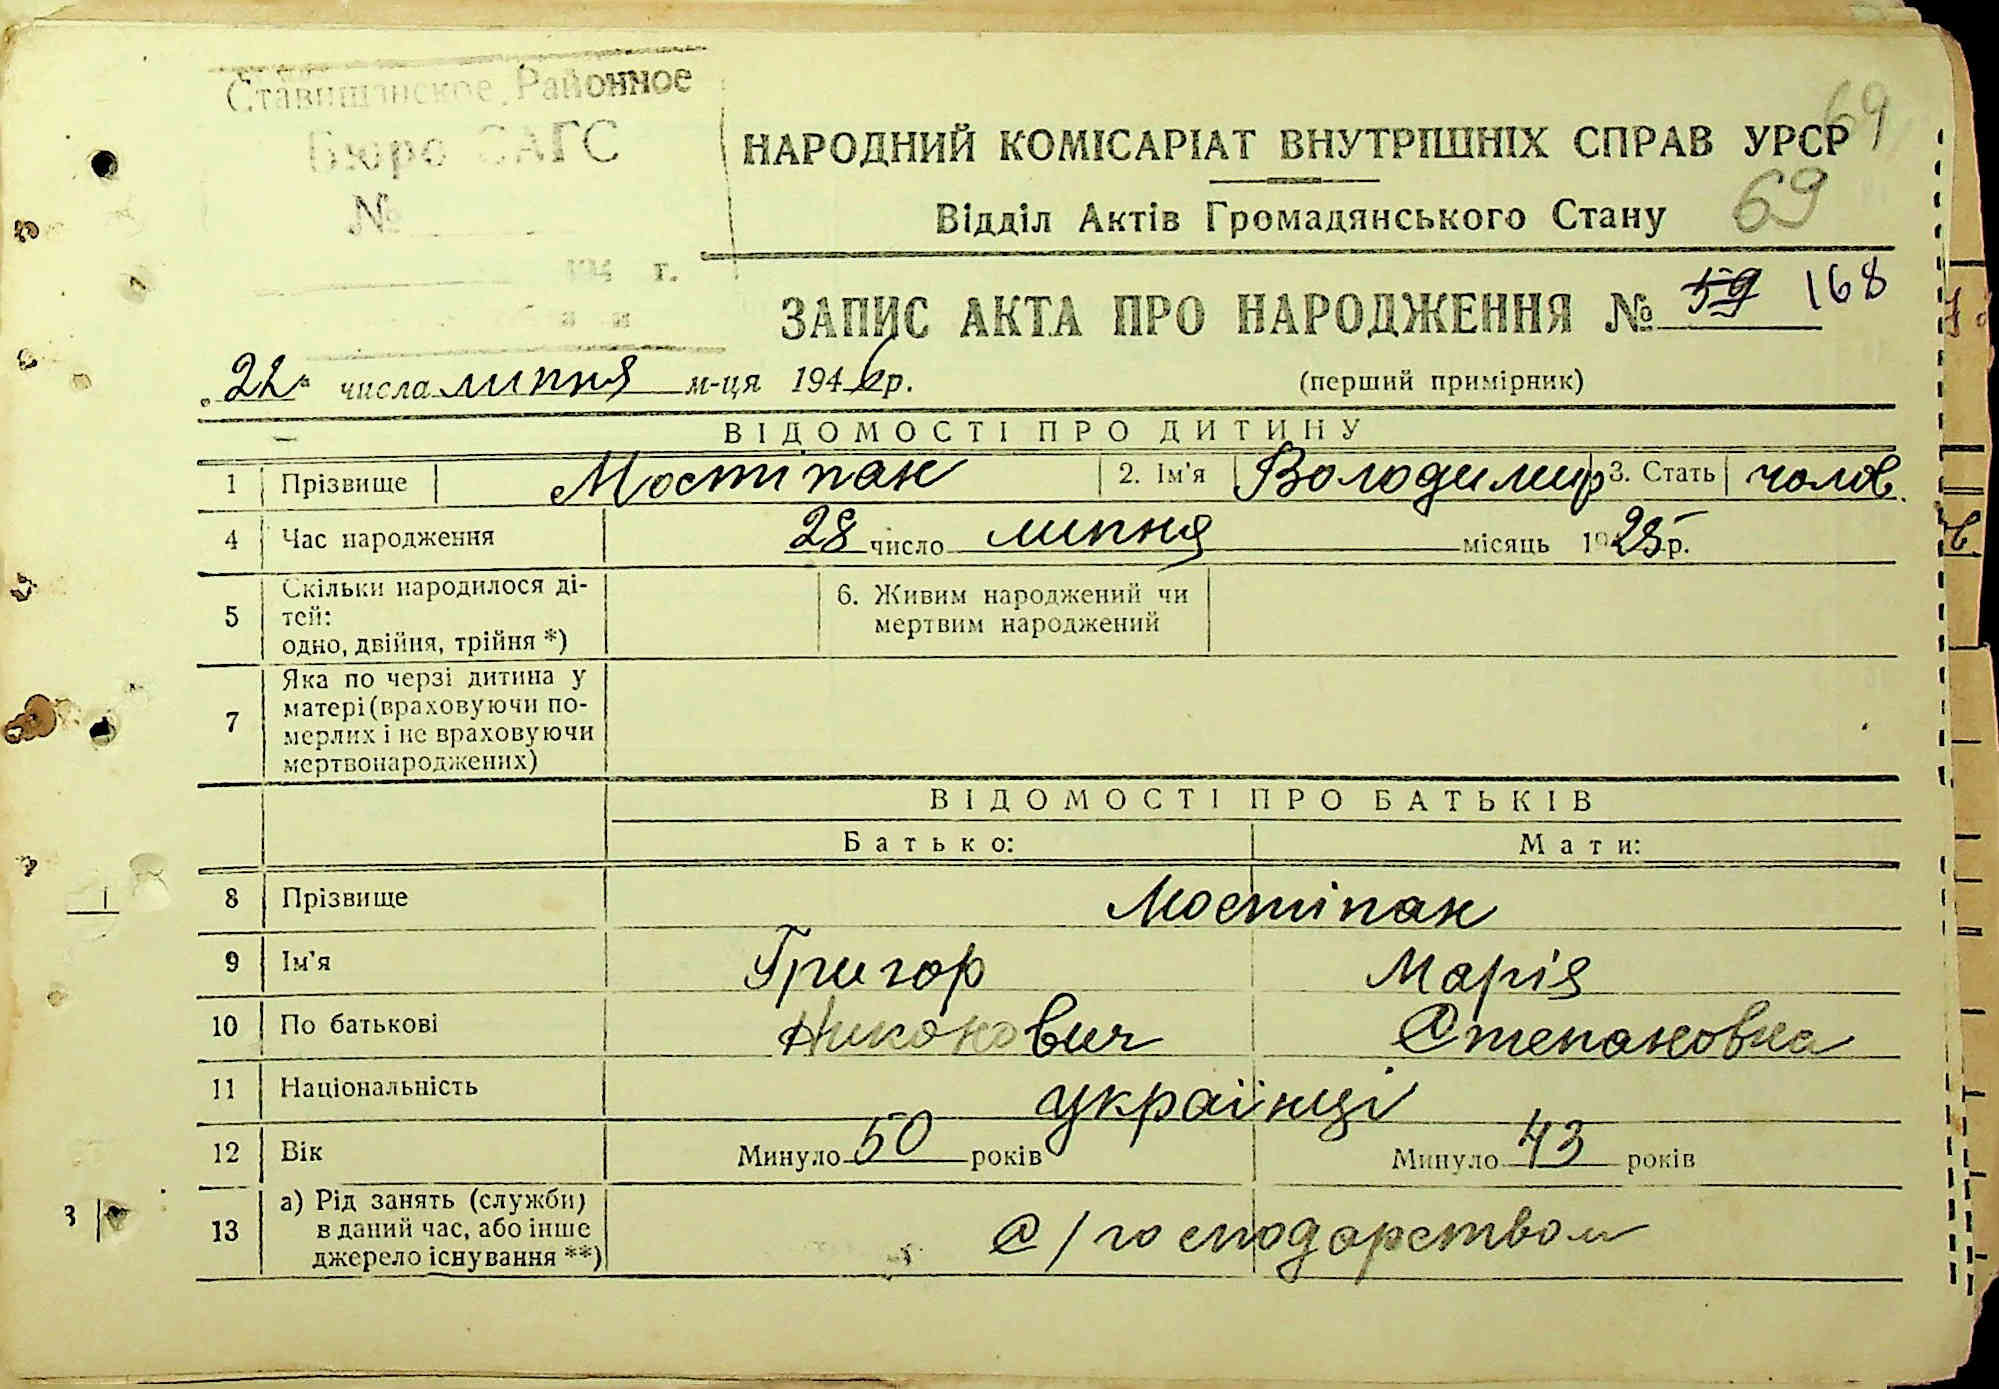 Ставищанское Районное
Бюро ЗАГС
№
194 г.
69
НАРОДНИЙ КОМІСАРІАТ ВНУТРІШНІХ СПРАВ УРСР
69
Відділ Актів Громадянського Стану
ЗАПИС АКТА ПРО НАРОДЖЕННЯ № 59 168
„22" числа липня м-ця 1946 р.
(перший примірник)
ВІДОМОСТІ ПРО ДИТИНУ
1 Прізвище Мостіпан 2. Ім'я Володимир 3. Стать чолов.
4 Час народження 28 число липня місяць 1925 р.
5 Скільки народилося ді-
тей:
одно, двійня, трійня *)
6. Живим народжений чи
мертвим народжений
7 Яка по черзі дитина у
матері (враховуючи по-
мерлих і не враховуючи
мертвонароджених)
ВІДОМОСТІ ПРО БАТЬКІВ
Батько: Мати:
8 Прізвище Мостіпан
9 Ім'я Григор Марія
10 По батькові Никонович Степановна
11 Національність українці
12 Вік Минуло 50 років Минуло 43 років
13 а) Рід занять (служби)
в даний час, або інше
джерело існування **)
С/господарством